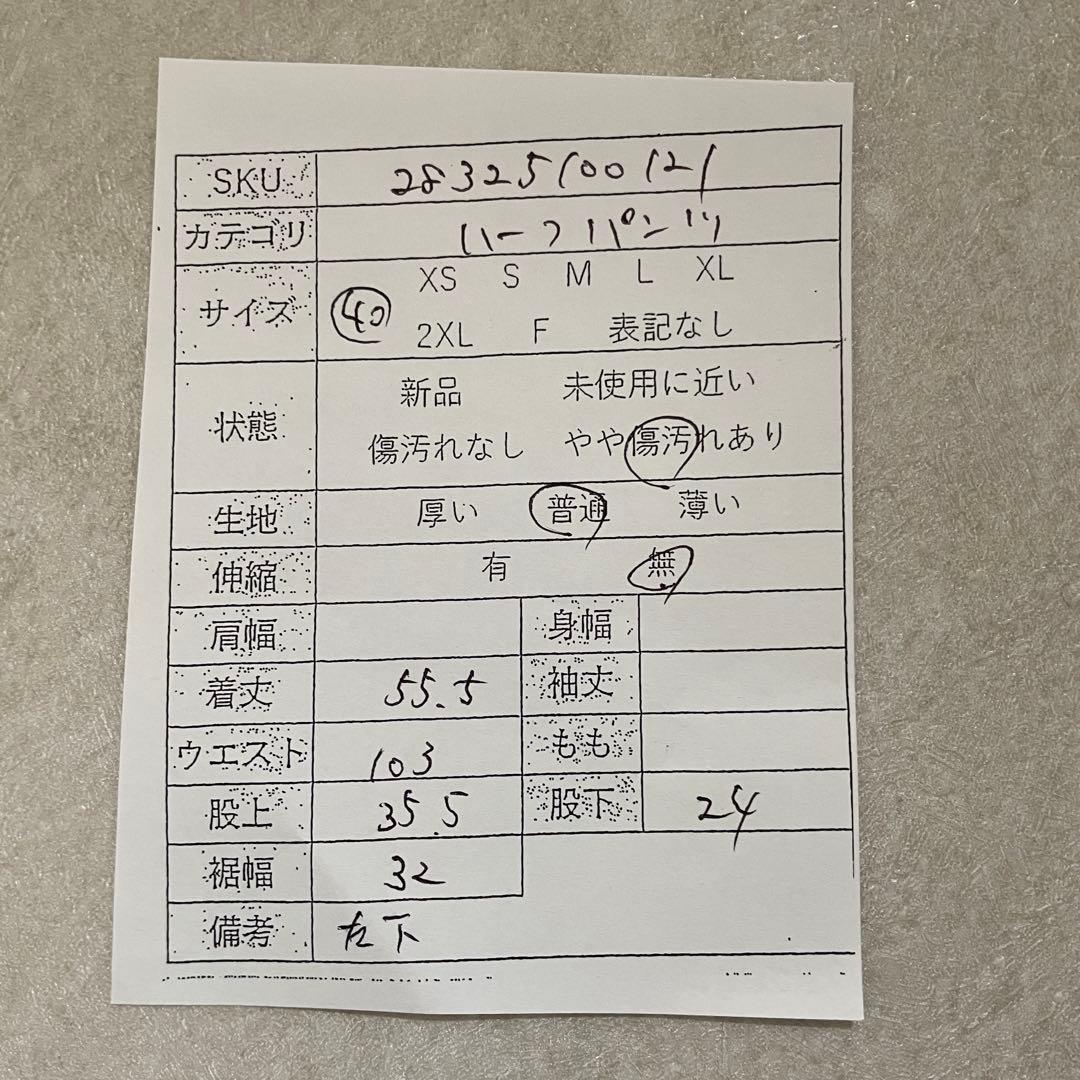 SKU 28325100121
カテゴリ ハーフパンツ
サイズ 40 XS S M L XL
2XL F 表記なし
状態 新品 未使用に近い
傷汚れなし やや傷汚れあり
生地 厚い 普通 薄い
伸縮 有 無
肩幅 身幅
着丈 55.5 袖丈
ウエスト 103 もも
股上 35.5 股下 24
裾幅 32
備考 左下